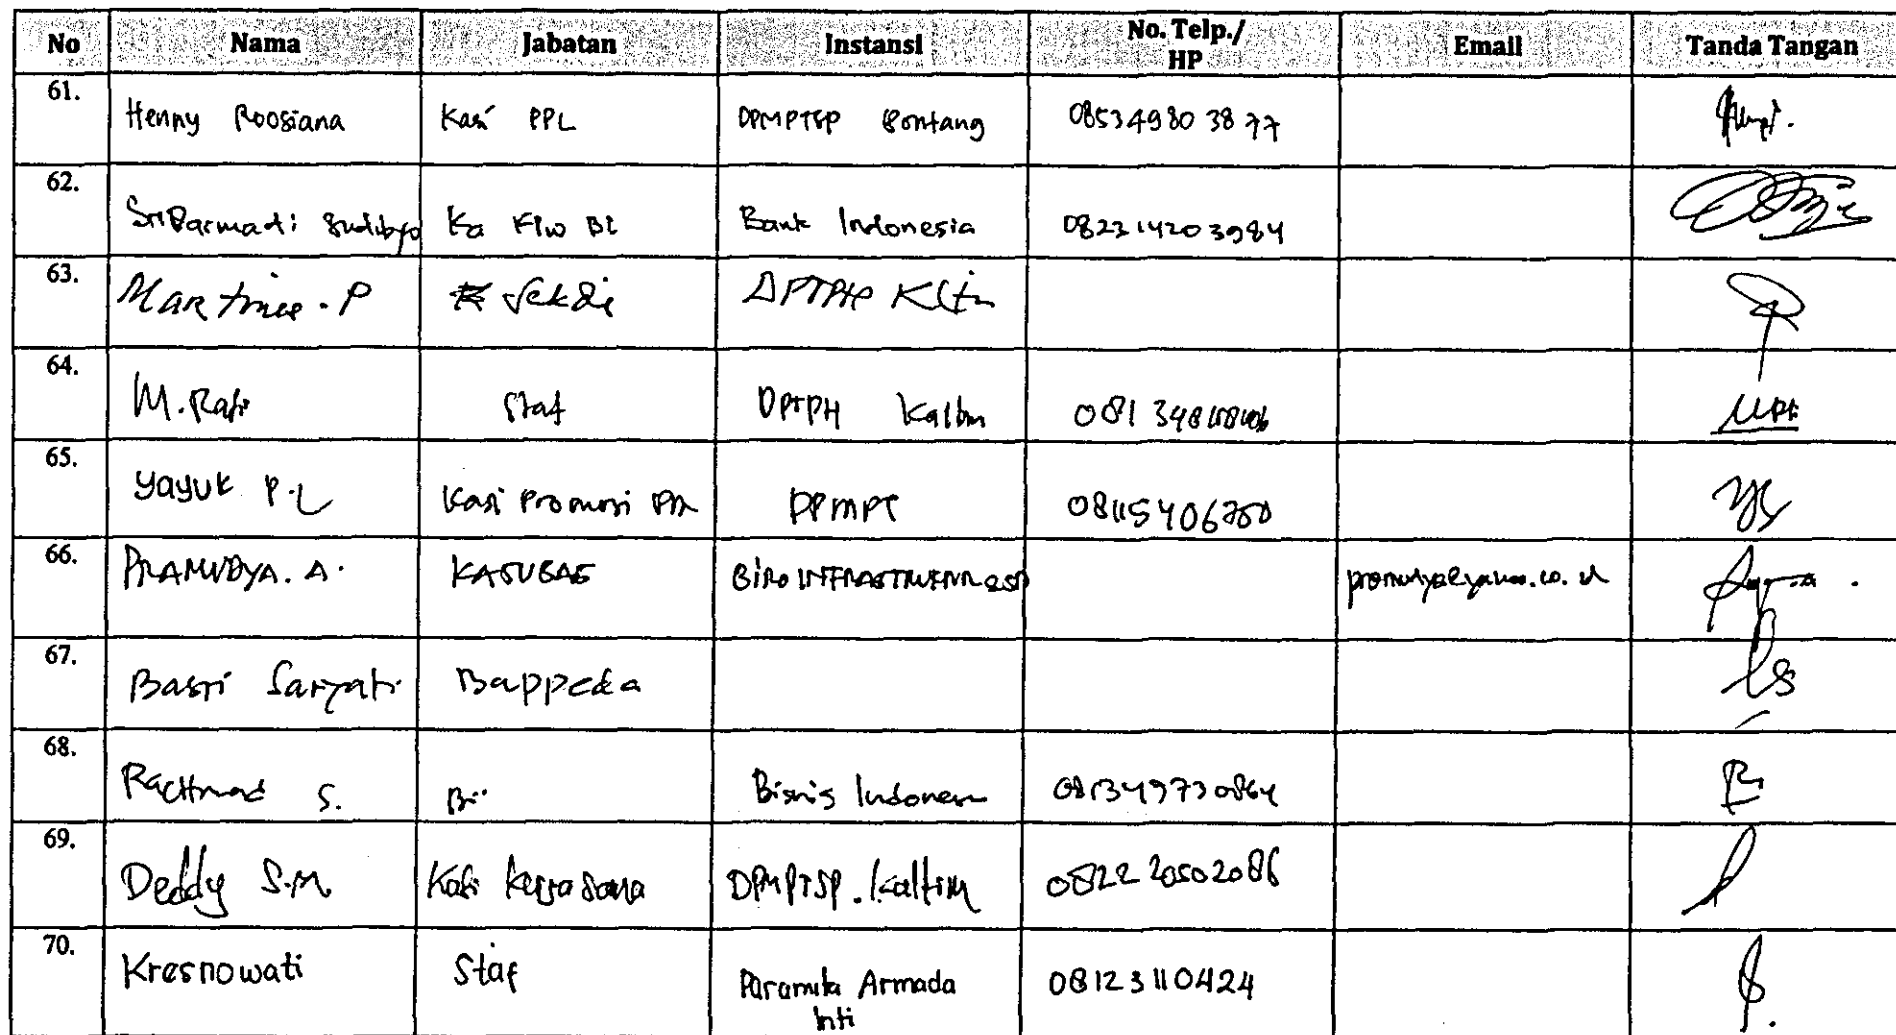 No Nama Jabatan Instansi No. Telp./ Email Tanda Tangan
HP
61. Henny Roosiana Kasi PPL DPMPTSP Bontang 085349803877
62. Sri Darmadi Sudibyo Ka KPw BI Bank Indonesia 082314203984
63. Martince. P Sekdis DPTPH Kltm
64. M. Rafi Staf DPTPH Kaltim
65. Yayuk P.L Kasi Promosi DPMPT
66. PRAMUDYA. A. KASUBAG BIRO
67. Basri Saryati Bappeda
68. Rachmad S. Bisnis Indonesia 081349730864
69. Deddy S.M Kasi Kerjasama DPMPTSP. Kaltim 082220502086
70. Kresnowati Staf Paramita Armada 08123110424
Inti